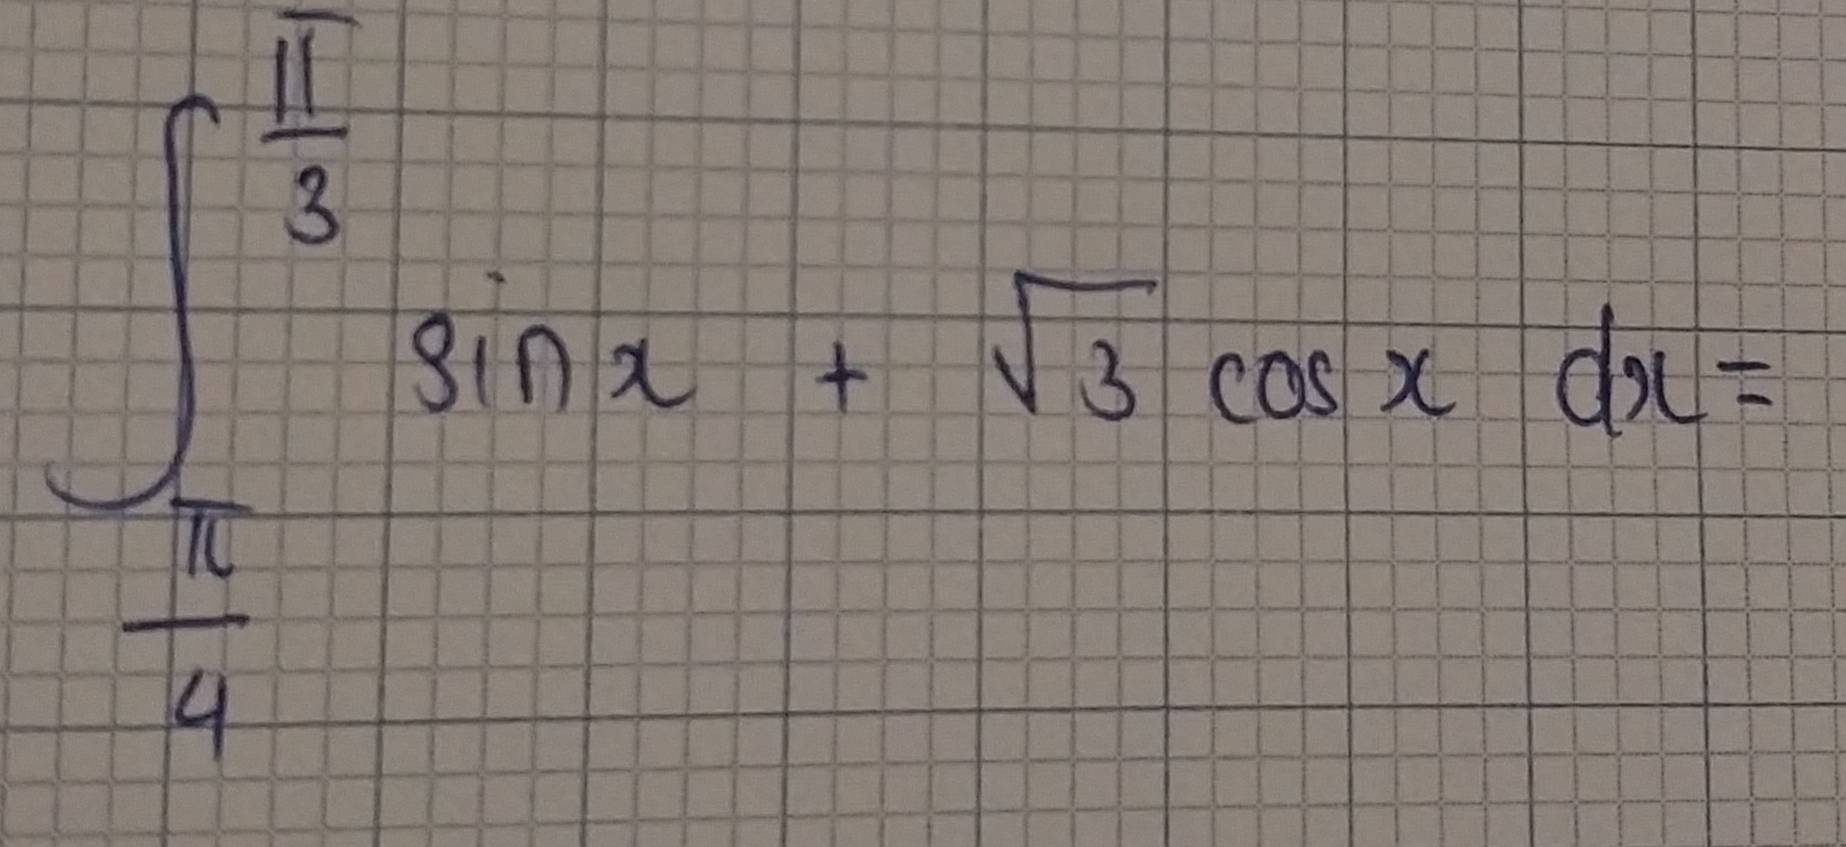 ∫_{π/4}^{π/3} sin x + √3 cos x dx =